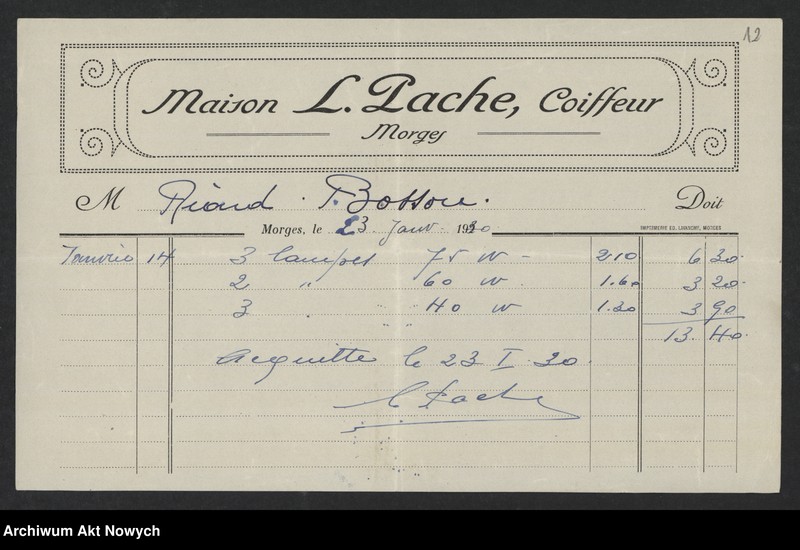 12
Maison L. Pache, Coiffeur
Morges
M Riond. Bosson. Doit
Morges, le 23 Janv. 1930
IMPRIMERIE ED. MORGES
Janvier 14 3 lampes 75 W - 2.10 6 30.
2 " 60 W . 1.60 3 20.
3 " 40 W 1.30 3 90
13. 40.
Acquitté le 23 I 30.
L Pache
Archiwum Akt Nowych